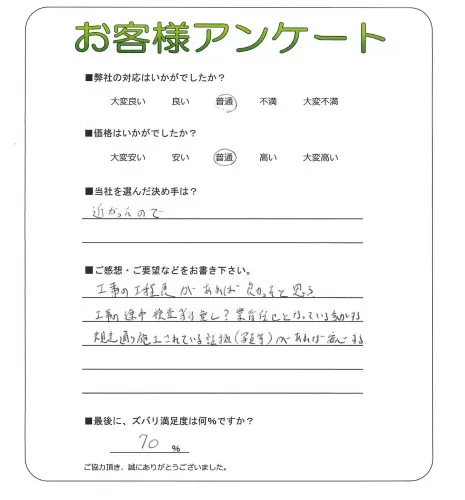 お客様アンケート
■弊社の対応はいかがでしたか？
大変良い 良い 普通 不満 大変不満
■価格はいかがでしたか？
大変安い 安い 普通 高い 大変高い
■当社を選んだ決め手は？
近かったので
■ご感想・ご要望などをお書き下さい。
工事の工程表があれば良かったと思う
工事の途中検査等無し？業者任せとなっている気がする
規定通り施工されている証拠(写真等)があれば安心する
■最後に、ズバリ満足度は何％ですか？
70 ％
ご協力頂き、誠にありがとうございました。